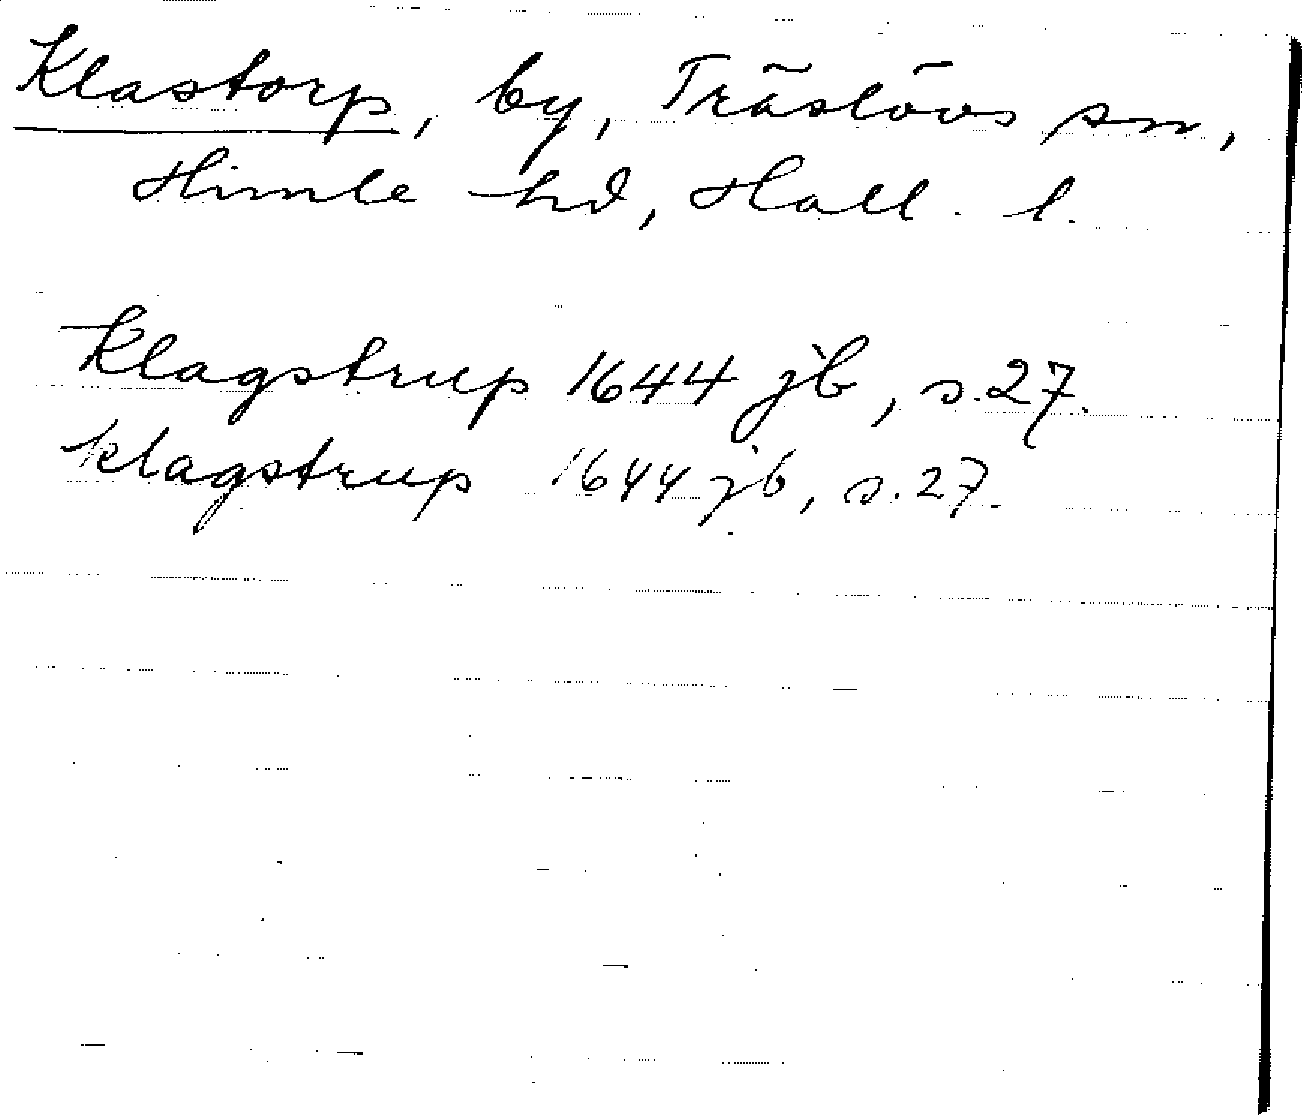 Klastorp, by, Träslövs sn,
Himle hd, Hall. l.
Klagstrup 1644 jb, s.27.
Klagstrup 1644 jb, s.27.